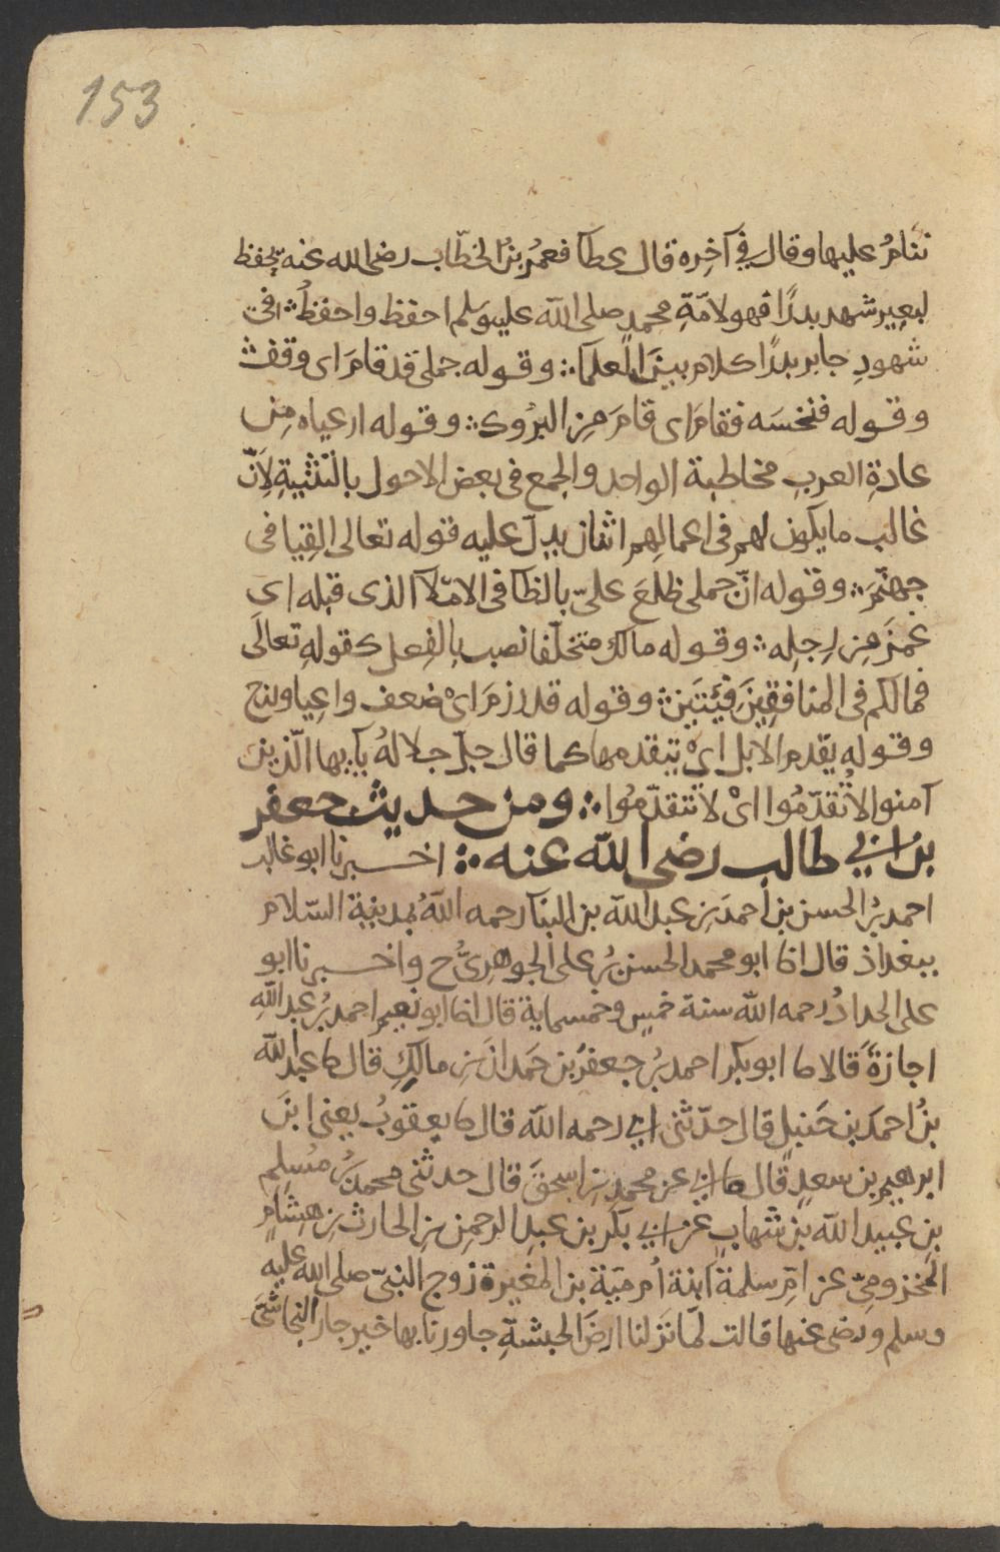 153
ننام عليها وقال في آخره قال عطا فعمر بن الخطّاب رضى الله عنه يحفظ
لبعير شهد بدرًا فهو لامّةِ محمدٍ صلى الله عليه وسلم احفظ واحفظُ ∴ افى
شهودِ جابر بدرًا كلام بينَ العلما ∴ وقوله جملى قد قامَ اى وقفَ ∴
وقوله فنخسَه فقامَ اى قامَ مِن البرُوك ∴ وقوله ارعياه مِن
عادةِ العربِ مخاطبة الواحد والجمع فى بعض الاحول بالتثنيةِ لِاَنّ
غالب ما يكون لهم فى اعمالِهم اثنان يدلّ عليه قوله تعالى القِيا فى
جهنّمَ ∴ وقوله انّ جملى ظلعَ علىّ بالظا فى الامّلا الذى قبله اى
غمزَ مِن رِجلِه ∴ وقوله مالك متخلّفا نصب بالفِعل كقولهِ تعالَى
فمالكم فى المنافقِينَ فِئتَينِ ∴ وقوله قد رزمَ اىْ ضعف واعيا ولنج
وقوله يقدم الابل اىْ يتقدمها كما قال جلّ جلالهُ يآ يها الّذين
آمنوا لا تُقدّمُوا اىْ لا تتقدّمُوا ∴ ومن حديث جعفر
بن ابي طالب رضى الله عنه ∴ اخبرنا ابو غالب
احمد بنُ الحسن بن أحمدَ بنِ عبد الله بن البنّا رحمه اللهُ بمدينة السّلام
ببغداذ قال انا ابو محمد الحسن بنُ على الجوهرىُّ ح واخبرنا ابو
على الحدادُ رحمه الله سنة خمسٍ وخمسماية قال انا ابو نعيم احمد بنُ عبد اللهِ
اجازةً قالا نا ابو بكر احمد بنُ جعفرَ بن حَمدانَ بنِ مالكٍ قال نا عبد الله
بنُ احمدَ بن حَنبلٍ قال حدّثنى ابي رحمه الله قال نا يعقوبُ يعنى ابنَ
ابرهيم بن سعدٍ قال نا ابي عن محمد بنِ اسحقَ قال حدثنى محمد بنُ مُسلِم
بنِ عبيد الله بن شهابٍ عن ابي بكر بن عبدِ الرحمنِ بنِ الحارث بنِ هِشَامٍ
المخزومىِّ عن امِّ سلمةَ ابنة أمَيّة بن المغيرة زوج النبىّ صلى الله عليه
وسلم ورضى عنها قالت لمّا نَزلنا ارضَ الحبشةِ جاورنا بها خير جار النجاشىَّ